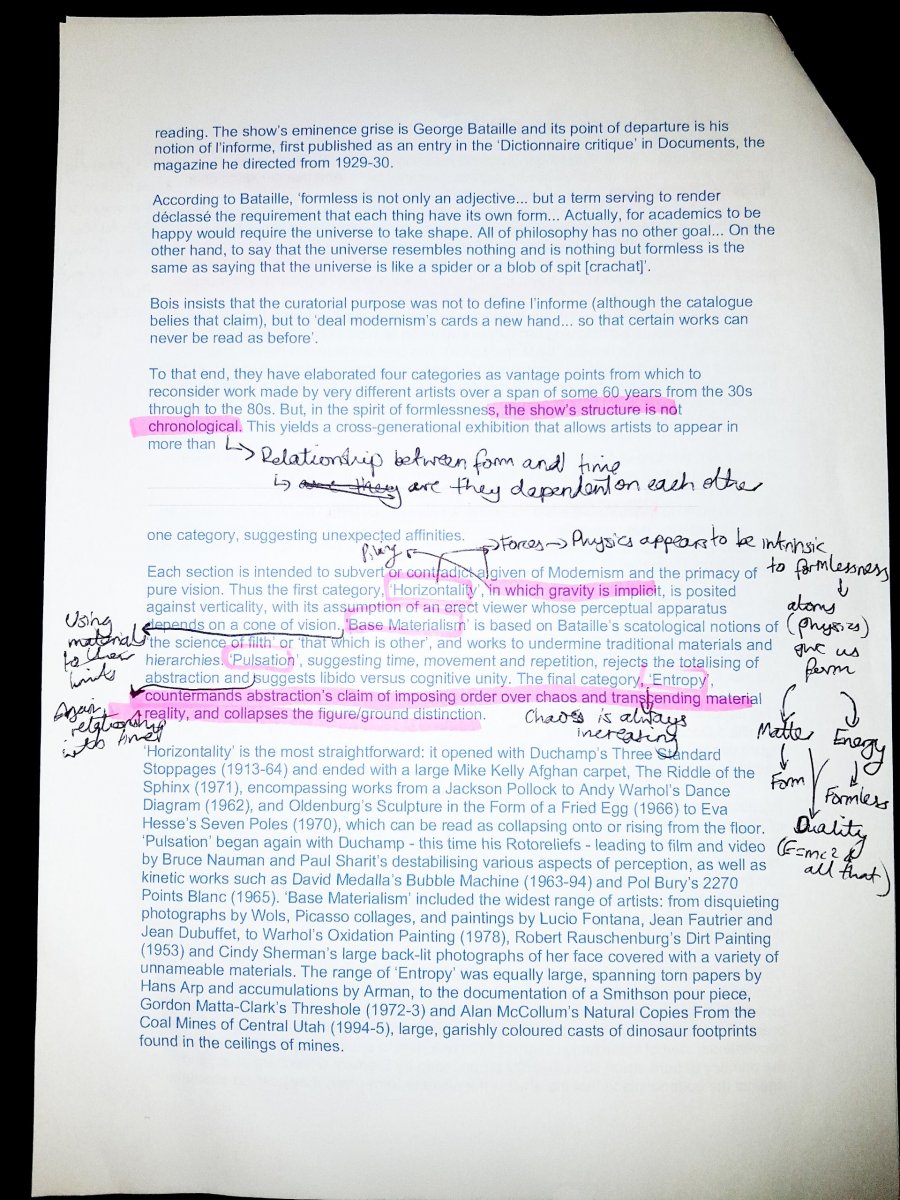 reading. The show's eminence grise is George Bataille and its point of departure is his
notion of l'informe, first published as an entry in the 'Dictionnaire critique' in Documents, the
magazine he directed from 1929-30.
According to Bataille, 'formless is not only an adjective... but a term serving to render
déclassé the requirement that each thing have its own form... Actually, for academics to be
happy would require the universe to take shape. All of philosophy has no other goal... On the
other hand, to say that the universe resembles nothing and is nothing but formless is the
same as saying that the universe is like a spider or a blob of spit [crachat]'.
Bois insists that the curatorial purpose was not to define l'informe (although the catalogue
belies that claim), but to 'deal modernism's cards a new hand... so that certain works can
never be read as before'.
To that end, they have elaborated four categories as vantage points from which to
reconsider work made by very different artists over a span of some 60 years from the 30s
through to the 80s. But, in the spirit of formlessness, the show's structure is not
chronological. This yields a cross-generational exhibition that allows artists to appear in
more than
Relationship between form and time
are they are they dependent on each other
one category, suggesting unexpected affinities.
Forces → Physics appears to be intrinsic
to formlessness
atoms
(physics)
give us
form
Matter
Energy
Form
Formless
Duality
(E=mc2 &
all that)
Each section is intended to subvert or contradict a given of Modernism and the primacy of
pure vision. Thus the first category, 'Horizontality', in which gravity is implicit, is posited
against verticality, with its assumption of an erect viewer whose perceptual apparatus
depends on a cone of vision. 'Base Materialism' is based on Bataille's scatological notions of
'the science of filth' or 'that which is other', and works to undermine traditional materials and
hierarchies. 'Pulsation', suggesting time, movement and repetition, rejects the totalising of
abstraction and suggests libido versus cognitive unity. The final category, 'Entropy',
countermands abstraction's claim of imposing order over chaos and transcending material
reality, and collapses the figure/ground distinction.
Using
material
to their
limits
Again
relationship
with time
Chaos is always
increasing
'Horizontality' is the most straightforward: it opened with Duchamp's Three Standard
Stoppages (1913-64) and ended with a large Mike Kelly Afghan carpet, The Riddle of the
Sphinx (1971), encompassing works from a Jackson Pollock to Andy Warhol's Dance
Diagram (1962), and Oldenburg's Sculpture in the Form of a Fried Egg (1966) to Eva
Hesse's Seven Poles (1970), which can be read as collapsing onto or rising from the floor.
'Pulsation' began again with Duchamp - this time his Rotoreliefs - leading to film and video
by Bruce Nauman and Paul Sharit's destabilising various aspects of perception, as well as
kinetic works such as David Medalla's Bubble Machine (1963-94) and Pol Bury's 2270
Points Blanc (1965). 'Base Materialism' included the widest range of artists: from disquieting
photographs by Wols, Picasso collages, and paintings by Lucio Fontana, Jean Fautrier and
Jean Dubuffet, to Warhol's Oxidation Painting (1978), Robert Rauschenburg's Dirt Painting
(1953) and Cindy Sherman's large back-lit photographs of her face covered with a variety of
unnameable materials. The range of 'Entropy' was equally large, spanning torn papers by
Hans Arp and accumulations by Arman, to the documentation of a Smithson pour piece,
Gordon Matta-Clark's Threshold (1972-3) and Alan McCollum's Natural Copies From the
Coal Mines of Central Utah (1994-5), large, garishly coloured casts of dinosaur footprints
found in the ceilings of mines.